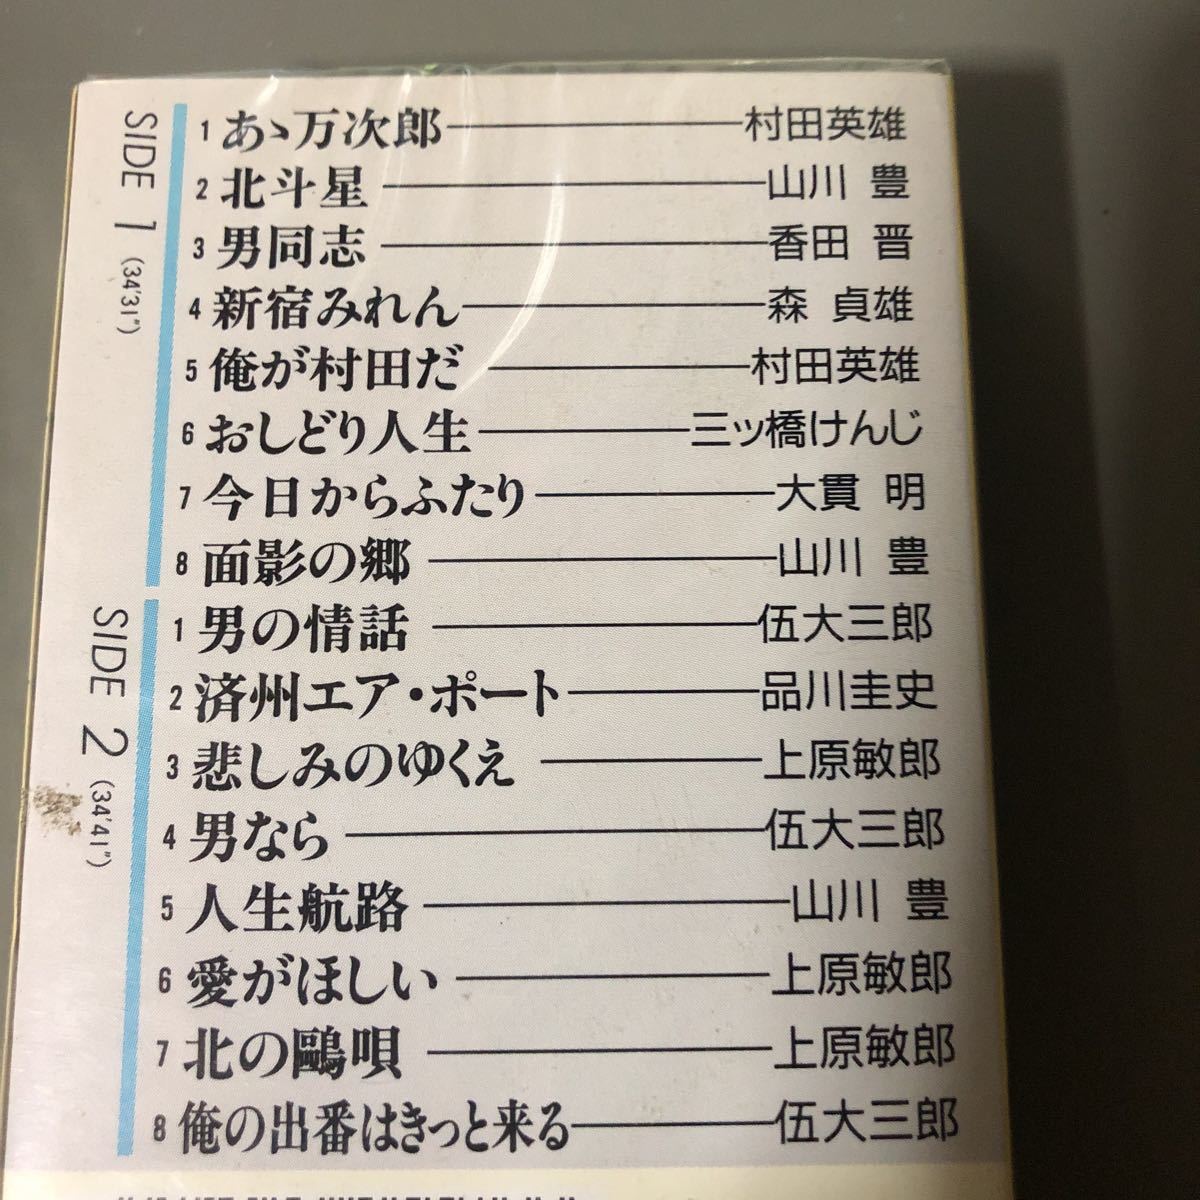 SIDE 1 (34'31")
1 あゝ万次郎 村田英雄
2 北斗星 山川 豊
3 男同志 香田 晋
4 新宿みれん 森 貞雄
5 俺が村田だ 村田英雄
6 おしどり人生 三ッ橋けんじ
7 今日からふたり 大貫 明
8 面影の郷 山川 豊
SIDE 2 (34'41")
1 男の情話 伍大三郎
2 済州エア・ポート 品川圭史
3 悲しみのゆくえ 上原敏郎
4 男なら 伍大三郎
5 人生航路 山川 豊
6 愛がほしい 上原敏郎
7 北の鷗唄 上原敏郎
8 俺の出番はきっと来る 伍大三郎